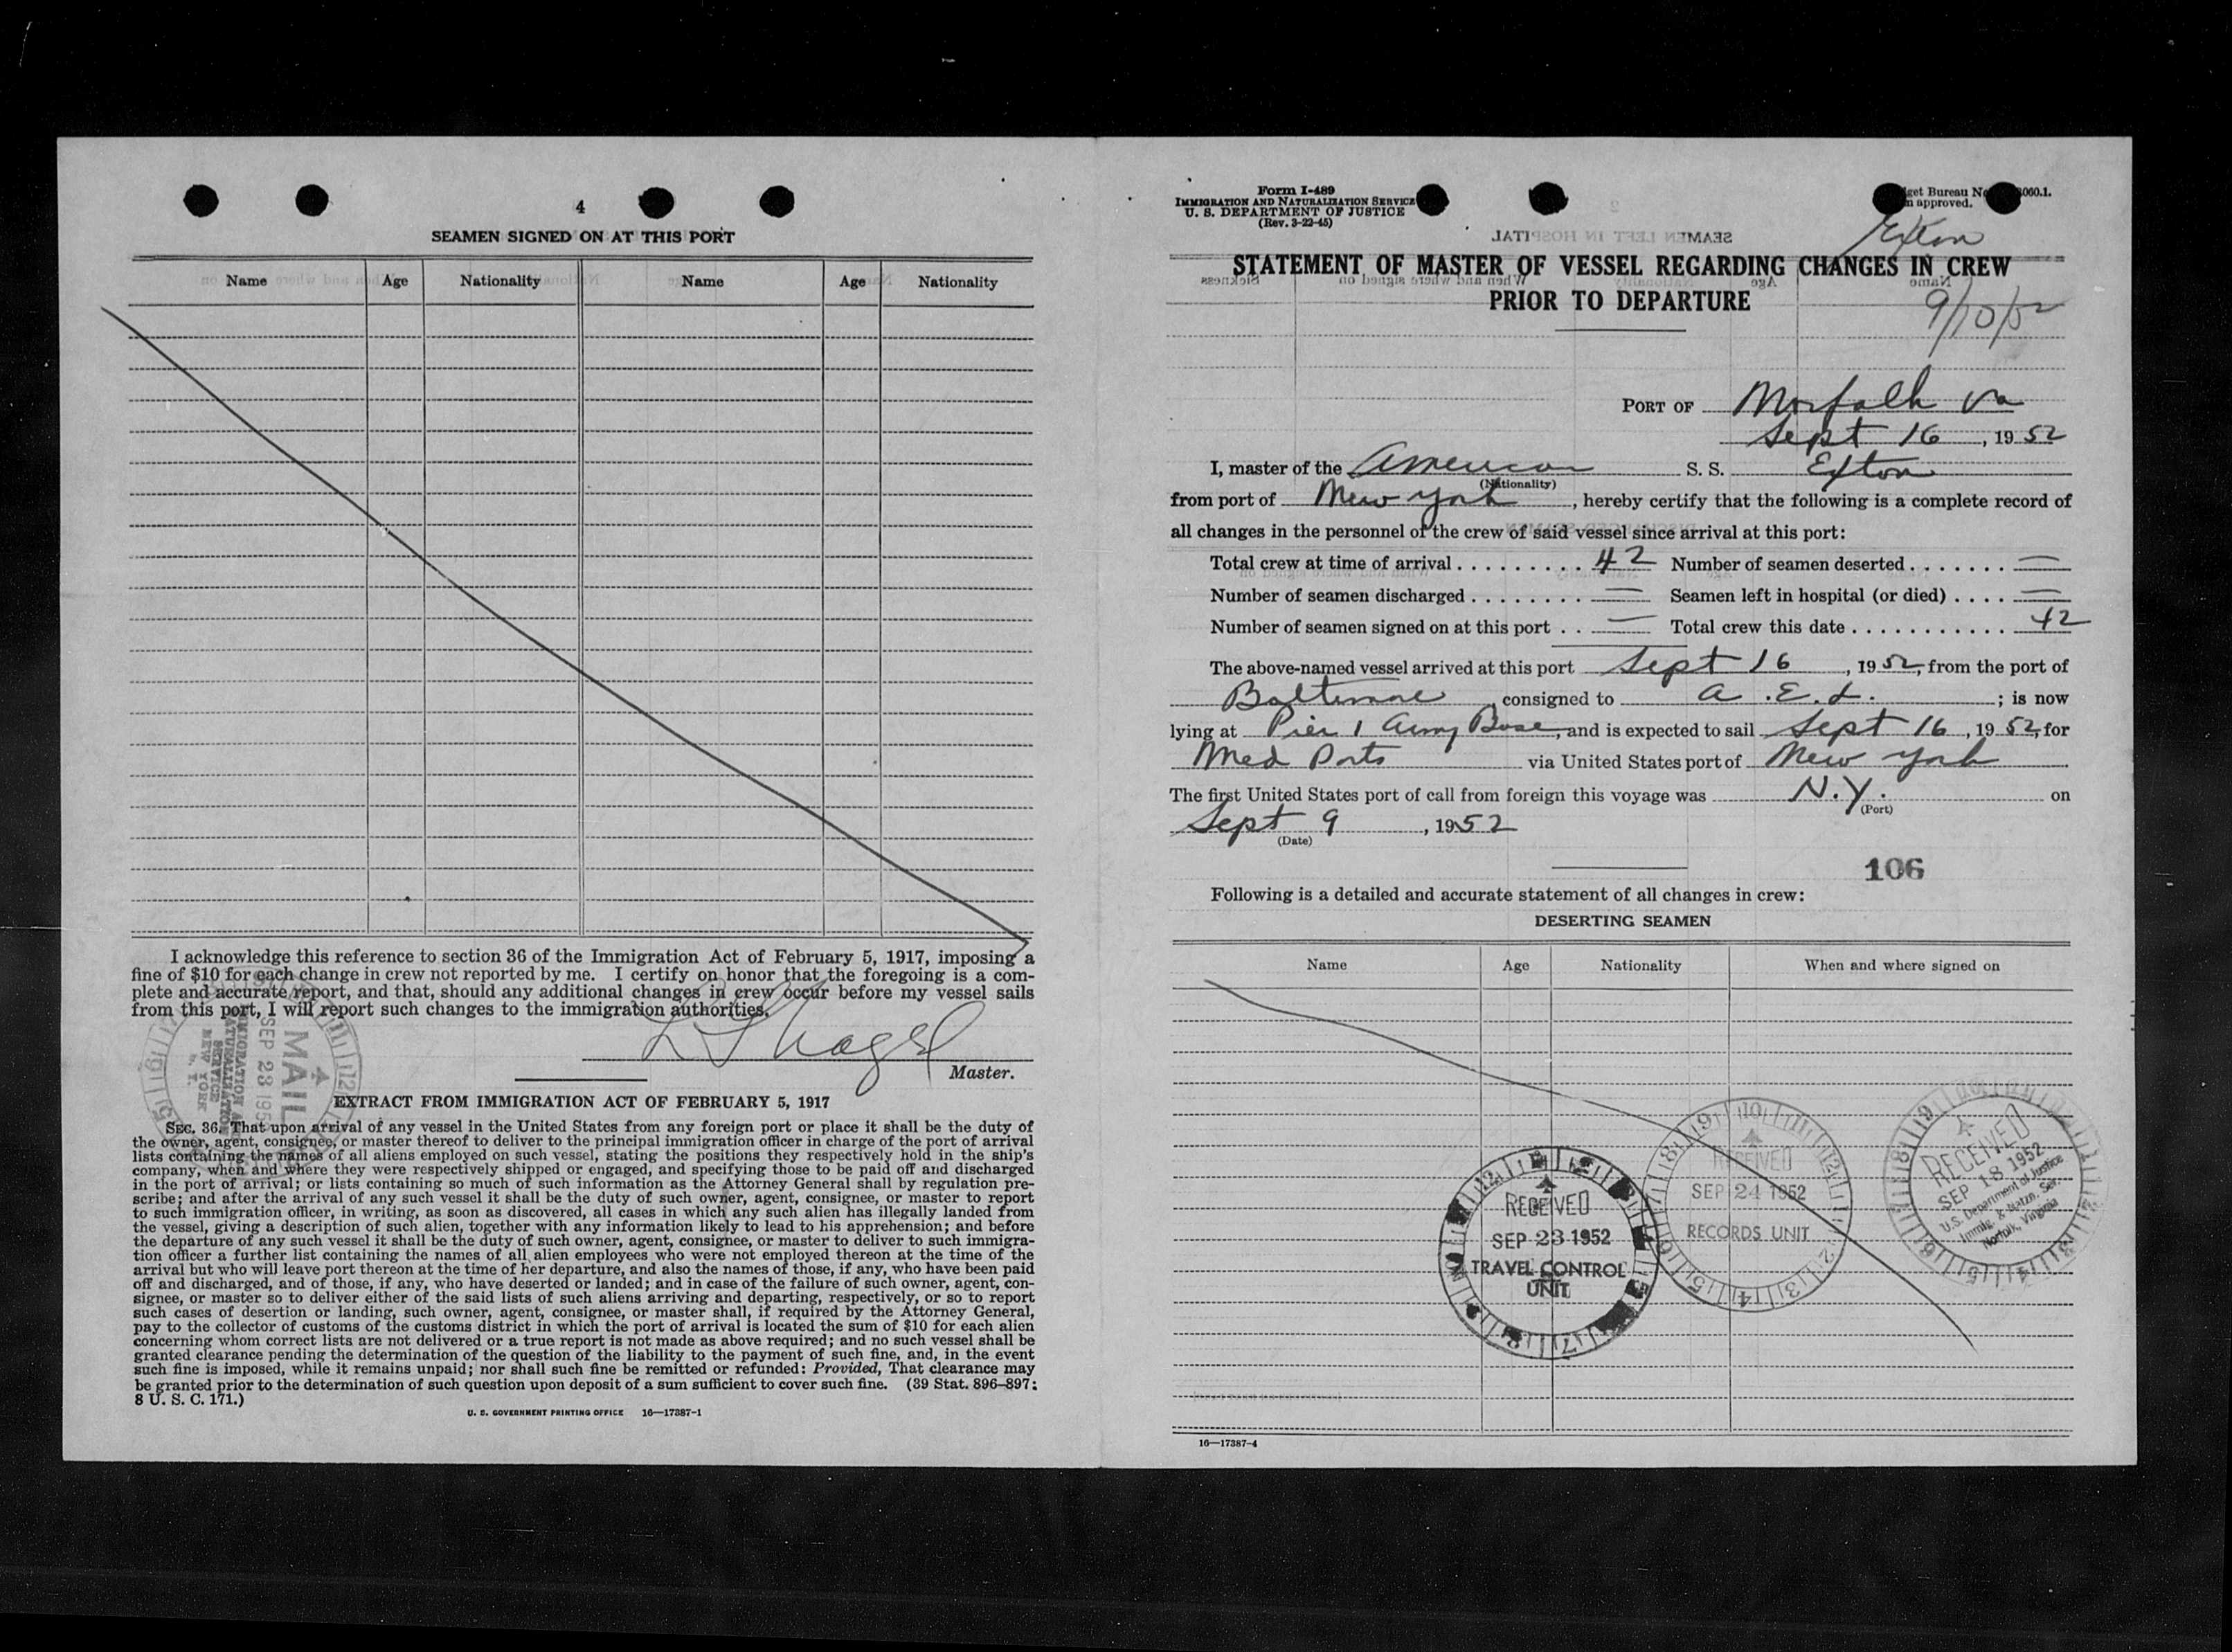 4
SEAMEN SIGNED ON AT THIS PORT
Name Age Nationality Name Age Nationality
I acknowledge this reference to section 36 of the Immigration Act of February 5, 1917, imposing a
fine of $10 for each change in crew not reported by me. I certify on honor that the foregoing is a com-
plete and accurate report, and that, should any additional changes in crew occur before my vessel sails
from this port, I will report such changes to the immigration authorities.
Master.
MAIL
SEP 23 195
IMMIGRATION AND
NATURALIZATION
SERVICE
NEW YORK
N. Y.
EXTRACT FROM IMMIGRATION ACT OF FEBRUARY 5, 1917
SEC. 36. That upon arrival of any vessel in the United States from any foreign port or place it shall be the duty of
the owner, agent, consignee, or master thereof to deliver to the principal immigration officer in charge of the port of arrival
lists containing the names of all aliens employed on such vessel, stating the positions they respectively hold in the ship's
company, when and where they were respectively shipped or engaged, and specifying those to be paid off and discharged
in the port of arrival; or lists containing so much of such information as the Attorney General shall by regulation pre-
scribe; and after the arrival of any such vessel it shall be the duty of such owner, agent, consignee, or master to report
to such immigration officer, in writing, as soon as discovered, all cases in which any such alien has illegally landed from
the vessel, giving a description of such alien, together with any information likely to lead to his apprehension; and before
the departure of any such vessel it shall be the duty of such owner, agent, consignee, or master to deliver to such immigra-
tion officer a further list containing the names of all alien employees who were not employed thereon at the time of the
arrival but who will leave port thereon at the time of her departure, and also the names of those, if any, who have been paid
off and discharged, and of those, if any, who have deserted or landed; and in case of the failure of such owner, agent, con-
signee, or master so to deliver either of the said lists of such aliens arriving and departing, respectively, or so to report
such cases of desertion or landing, such owner, agent, consignee, or master shall, if required by the Attorney General,
pay to the collector of customs of the customs district in which the port of arrival is located the sum of $10 for each alien
concerning whom correct lists are not delivered or a true report is not made as above required; and no such vessel shall be
granted clearance pending the determination of the question of the liability to the payment of such fine, and, in the event
such fine is imposed, while it remains unpaid; nor shall such fine be remitted or refunded: Provided, That clearance may
be granted prior to the determination of such question upon deposit of a sum sufficient to cover such fine. (39 Stat. 896–897;
8 U. S. C. 171.)
U. S. GOVERNMENT PRINTING OFFICE 16—17387-1
Form I-489
IMMIGRATION AND NATURALIZATION SERVICE
U. S. DEPARTMENT OF JUSTICE
(Rev. 3-22-45)
get Bureau No. 060.1.
n approved.
Exton
STATEMENT OF MASTER OF VESSEL REGARDING CHANGES IN CREW
PRIOR TO DEPARTURE
9/10/52
PORT OF Norfolk Va
Sept 16, 1952
I, master of the American S. S. Exton
(Nationality)
from port of New York, hereby certify that the following is a complete record of
all changes in the personnel of the crew of said vessel since arrival at this port:
Total crew at time of arrival . . . . . . . . . 42 Number of seamen deserted . . . . . . . —
Number of seamen discharged . . . . . . . . — Seamen left in hospital (or died) . . . . —
Number of seamen signed on at this port . . — Total crew this date . . . . . . . . . . . . 42
The above-named vessel arrived at this port Sept 16, 1952, from the port of
Baltimore, consigned to A.E.L.; is now
lying at Pier 1 Army Base, and is expected to sail Sept 16, 1952, for
Med Ports via United States port of New York
The first United States port of call from foreign this voyage was N.Y. on
(Port)
Sept 9, 1952
(Date)
106
Following is a detailed and accurate statement of all changes in crew:
DESERTING SEAMEN
Name Age Nationality When and where signed on
RECEIVED
SEP 23 1952
TRAVEL CONTROL
UNIT
RECEIVED
SEP 24 1952
RECORDS UNIT
RECEIVED
SEP 18 1952
U.S. Department of Justice
Immig. & Natzn. Ser.
Norfolk, Virginia
16—17387-4